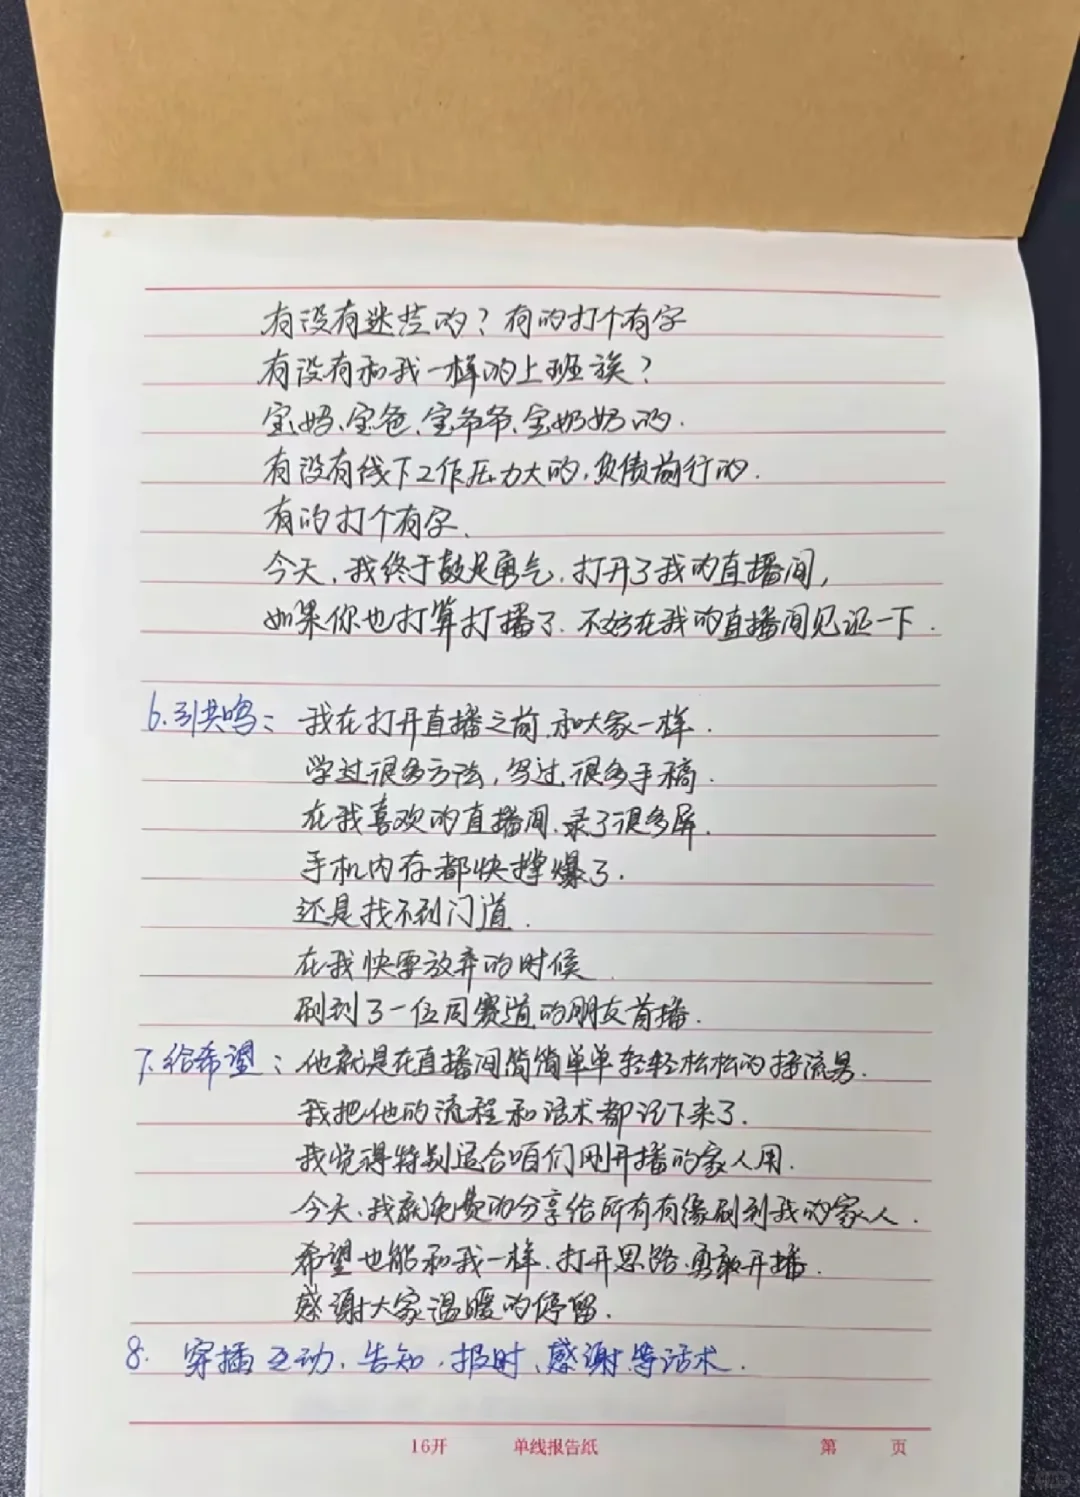 有没有迷茫的？有的打个有字
有没有和我一样的上班族？
宝妈、宝爸、宝爷爷、宝奶奶的.
有没有线下工作压力大的，负债前行的.
有的打个有字.
今天，我终于鼓足勇气，打开了我的直播间，
如果你也打算打播了.不妨在我的直播间见证一下.
6.引共鸣：我在打开直播之前，和大家一样.
学过很多方法，写过很多手稿.
在我喜欢的直播间，录了很多屏.
手机内存都快撑爆了.
还是找不到门道.
在我快要放弃的时候.
刷到了一位同赛道的朋友首播.
7.给希望：他就是在直播间简简单单轻轻松松的接流量.
我把他的流程和话术都记下来了.
我觉得特别适合咱们刚开播的家人用.
今天，我就免费的分享给所有有缘刷到我的家人.
希望也能和我一样，打开思路，勇敢开播.
感谢大家温暖的停留.
8.穿插互动，告知，报时、感谢等话术.
16开 单线报告纸 第 页